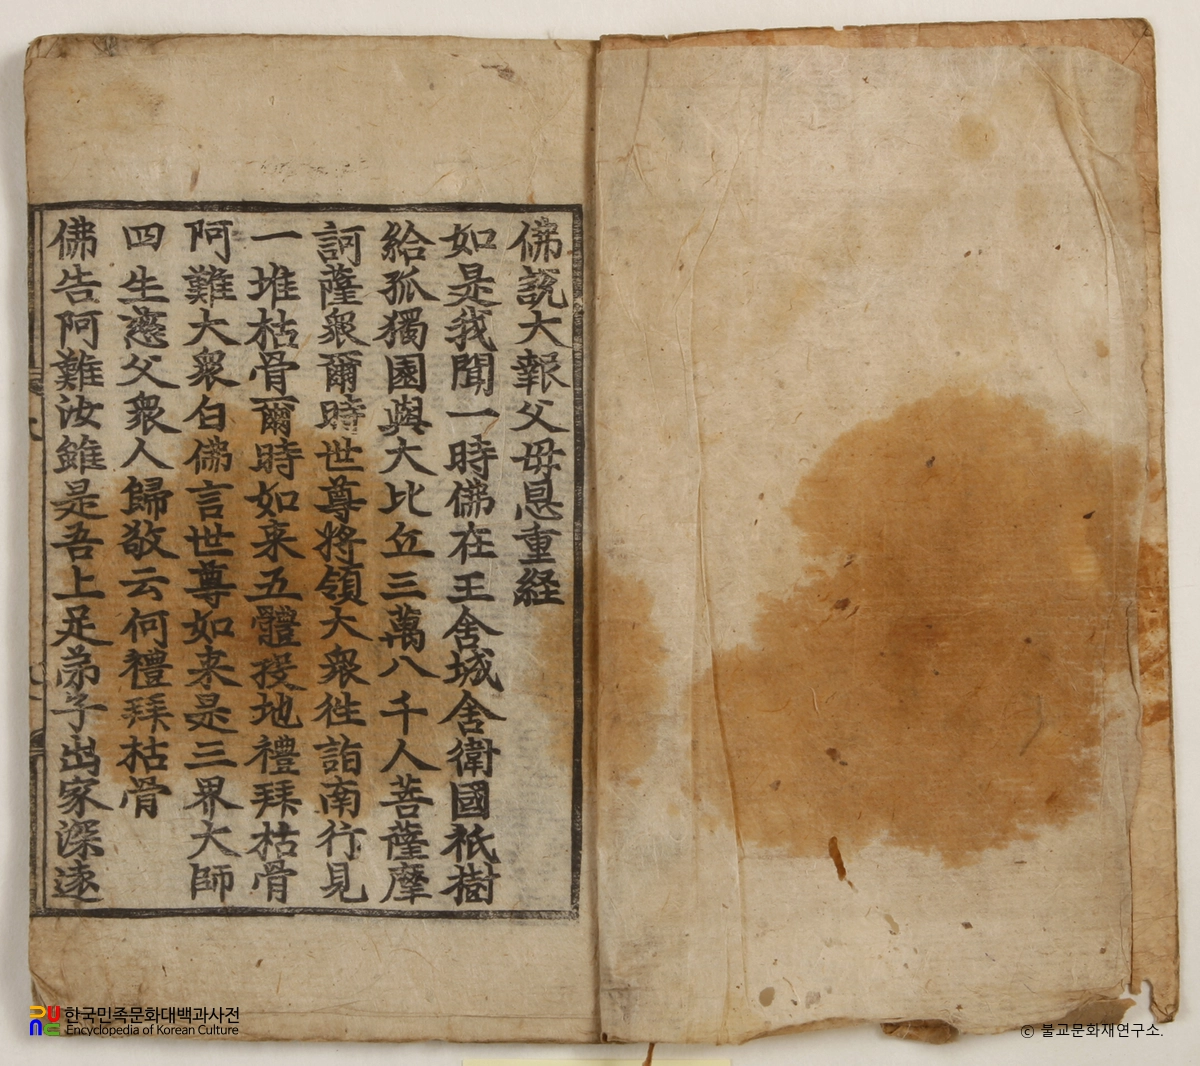 佛說大報父母恩重経
如是我聞一時佛在王舍城舍衛國祇樹
給孤獨園與大比丘三萬八千人菩薩摩
訶薩衆爾時世尊將領大衆徃詣南行見
一堆枯骨爾時如来五體投地禮拜枯骨
阿難大衆白佛言世尊如来是三界大師
四生慈父衆人歸敬云何禮拜枯骨
佛告阿難汝雖是吾上足弟子出家深遠
한국민족문화대백과사전
Encyclopedia of Korean Culture
ⓒ 불교문화재연구소.